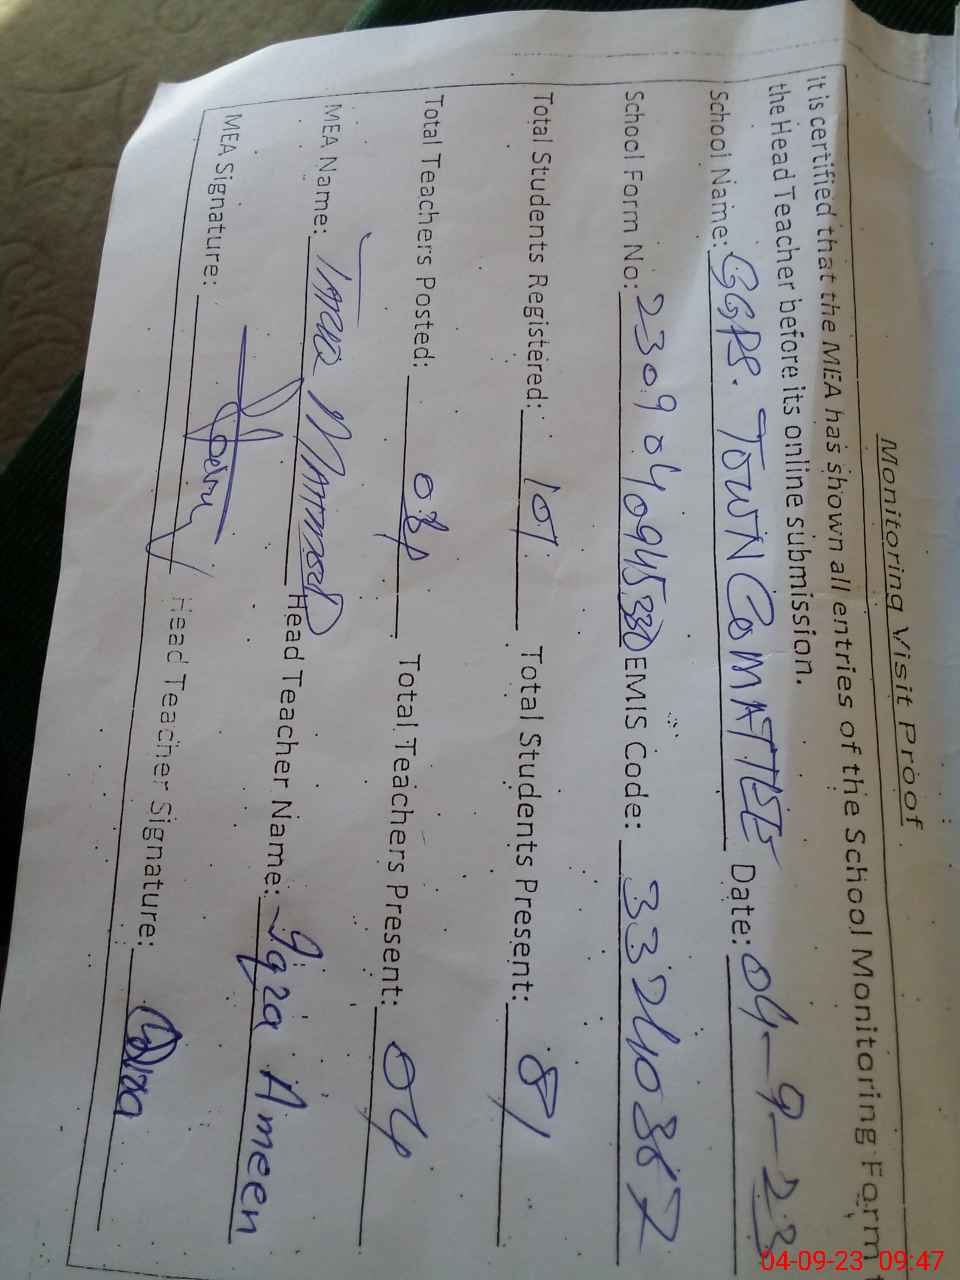 Monitoring Visit Proof
It is certified that the MEA has shown all entries of the School Monitoring Form
the Head Teacher before its online submission.
School Name: GGPS. TOWN COMMATTEE Date: 04-9-23
School Form No: 2309040945330 EMIS Code: 33240387
Total Students Registered: 107 Total Students Present: 81
Total Teachers Posted: 04 Total Teachers Present: 04
MEA Name: Mahmood Head Teacher Name: Iqra Ameen
MEA Signature: Head Teacher Signature:
04-09-23 09:47